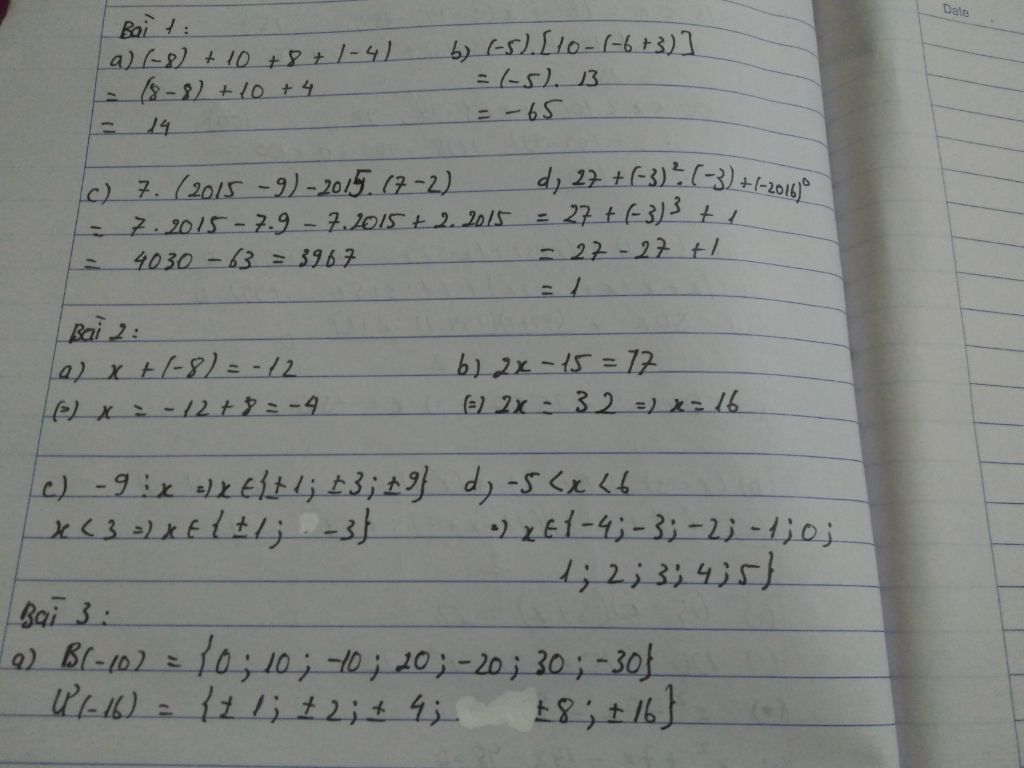 Date
Bài 1:
a) (-8) + 10 + 8 + |-4|
= (8-8) + 10 + 4
= 14
b) (-5).[10-(-6+3)]
= (-5). 13
= -65
c) 7. (2015 - 9) - 2015. (7-2)
= 7.2015 - 7.9 - 7.2015 + 2.2015
= 4030 - 63 = 3967
d, 27 + (-3)². (-3) + (-2016)⁰
= 27 + (-3)³ + 1
= 27 - 27 + 1
= 1
Bài 2:
a) x + (-8) = -12
(=) x = -12 + 8 = -4
b) 2x - 15 = 17
(=) 2x = 32 => x = 16
c) -9 ⋮ x => x ∈ {±1; ±3; ±9}
x < 3 => x ∈ {±1; -3}
d, -5 < x < 6
=) x ∈ {-4; -3; -2; -1; 0;
1; 2; 3; 4; 5}
Bài 3:
a) B(-10) = {0; 10; -10; 20; -20; 30; -30}
Ư(-16) = {±1; ±2; ± 4; ±8; ±16}